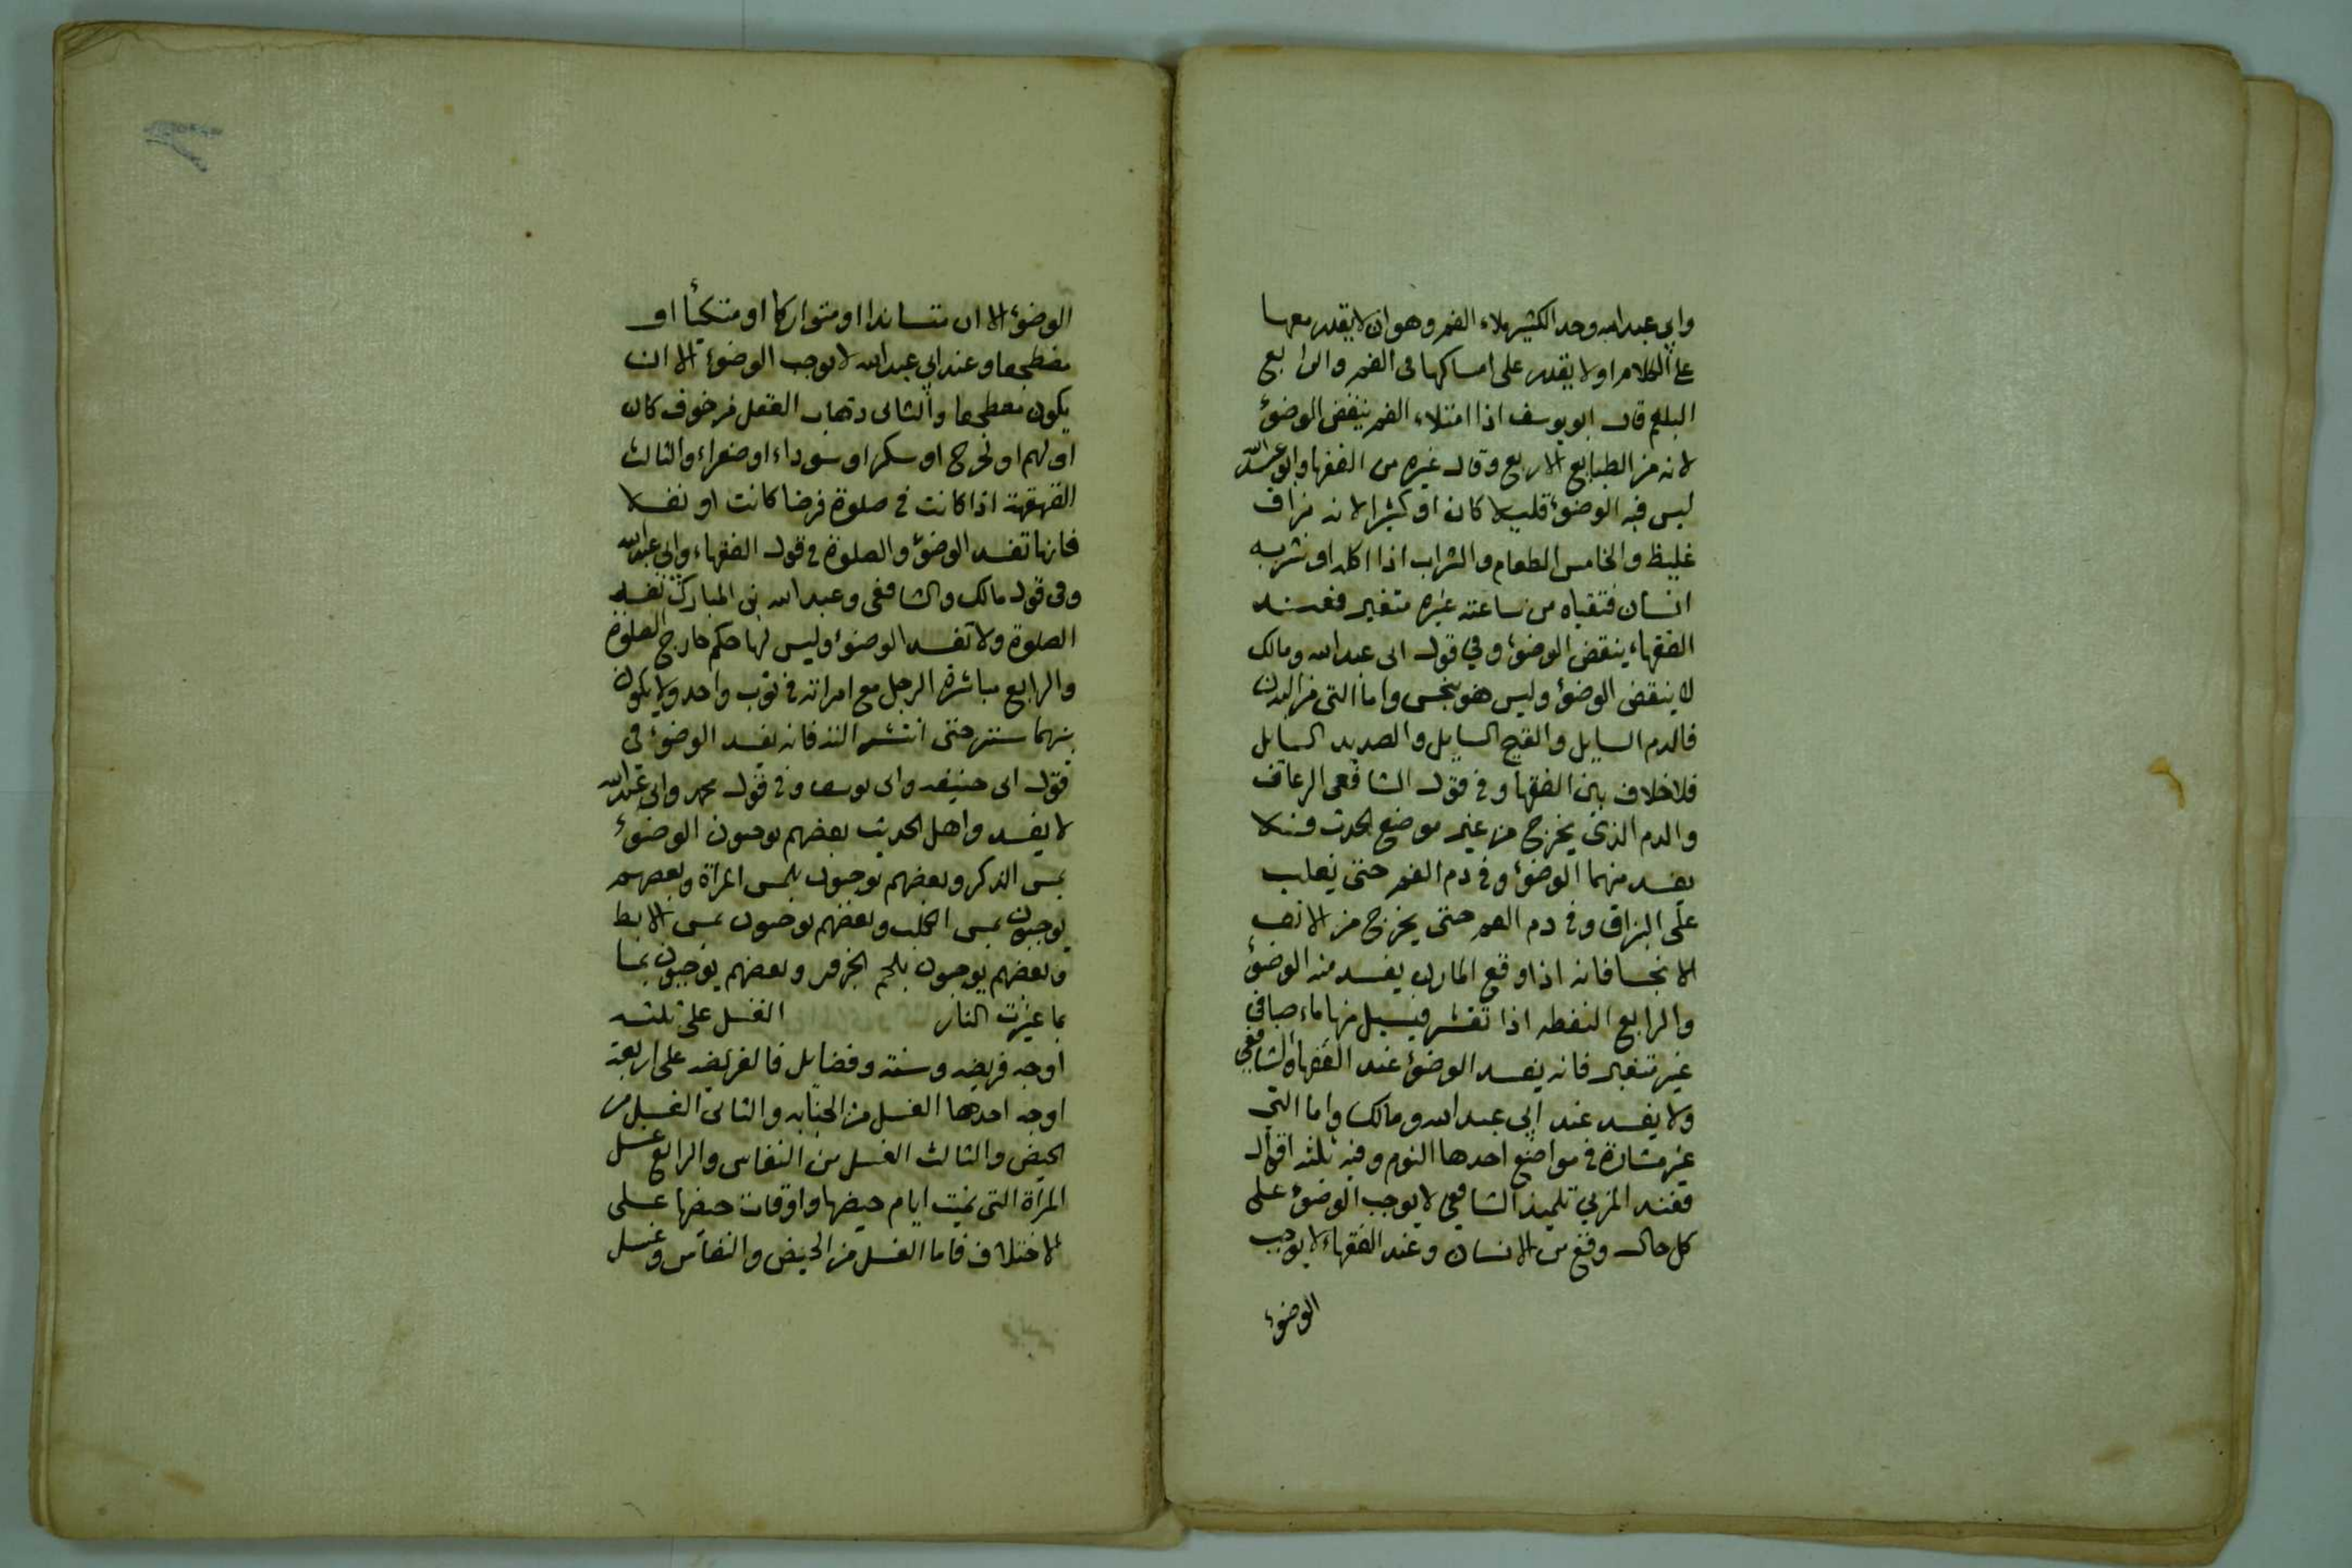 وابي عبدالله وحد الكثير ملاء الفم وهو ان لا يقدر معها
على الكلام او لا يقدر على امساكها فى الفم والرابع
البلغم قال ابو يوسف اذا امتلاء الفم ينقض الوضوء
لانه من الطبايع الاربع وقال غيره من الفقها وابو عبدالله
ليس فيه الوضوء قليلا كان او كثيرا لانه بزاق
غليظ والخامس الطعام والشراب اذا اكله او شربه
انسان فتقياه من ساعته غيره متغير فعند
الفقهاء ينقض الوضوء وفي قول ابى عبدالله ومالك
لا ينقض الوضوء وليس هو بنجس واما التى من البدن
فالدم السايل والقيح السايل والصديد السايل
فلا خلاف بين الفقها وفى قول الشافعى الرعاف
والدم الذى يخرج من غير موضع الحدث فلا
يفسد منهما الوضوء وفى دم الفم حتى يغلب
على البزاق وفى دم الفم حتى يخرج من الانف
الانجسا فانه اذا وقع المارن يفسد منه الوضوء
والرابع النفطه اذا تقشر فيسيل منها ماء صافى
غير متغير فانه يفسد الوضوء عند الفقها والشافعي
ولا يفسد عند ابي عبدالله ومالك واما التي
غير مشارة فى مواضع احدها النوم وفيه ثلثه اقوال
فعند المزني تلميذ الشافعي لا يوجب الوضوء على
كل حال وقع من الانسان وعند الفقهاء لا يوجب
الوضوء
الوضوء الا ان متساندا او متواركا او متكيأ او
مضطجعا وعند ابي عبدالله لا يوجب الوضوء الا ان
يكون مضطجعا والثانى ذهاب العقل من خوف كان
او لهم او لجرح او سكر او سوداء او صفراء والثالث
القهقهة اذا كانت فى صلوة فرضا كانت او نفلا
فانها تفسد الوضوء والصلوة فى قول الفقهاء وابي عبدالله
وفى قول مالك والشافعى وعبدالله بن المبارك تفسد
الصلوة ولا تفسد الوضوء وليس لها حكم خارج الصلوة
والرابع مباشرة الرجل مع امراته فى ثوب واحد ولا يكون
بينهما ستر حتى انتشر الذكر فانه يفسد الوضوء فى
قول ابى حنيفه وابى يوسف وفى قول محمد وابي عبدالله
لا يفسد واهل الحديث بعضهم يوجبون الوضوء
بمس الذكر وبعضهم يوجبون بلمس المراة وبعضهم
يوجبون بمس الكلب وبعضهم يوجبون بمس الابط
وبعضهم يوجبون بلحم الجزور وبعضهم يوجبون بما
بما غيرت النار الغسل على ثلثه
اوجه فريضه وسنة وفضايل فالفريضه على اربعة
اوجه احدها الغسل من الجنابه والثانى الغسل من
الحيض والثالث الغسل من النفاس والرابع غسل
المراة التى نسيت ايام حيضها واوقات حيضها على
الاختلاف فاما الغسل من الحيض والنفاس وغسل